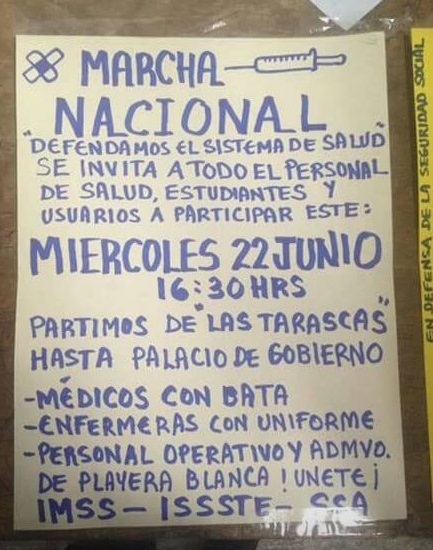 MARCHA
NACIONAL
"DEFENDAMOS EL SISTEMA DE SALUD"
SE INVITA A TODO EL PERSONAL
DE SALUD, ESTUDIANTES Y
USUARIOS A PARTICIPAR ESTE:
MIERCOLES 22 JUNIO
16:30 HRS
PARTIMOS DE "LAS TARASCAS"
HASTA PALACIO DE GOBIERNO
-MÉDICOS CON BATA
-ENFERMERAS CON UNIFORME
-PERSONAL OPERATIVO Y ADMVO.
DE PLAYERA BLANCA ! UNETE ¡
IMSS - ISSSTE - SSA
EN DEFENSA DE LA SEGURIDAD SOCIAL